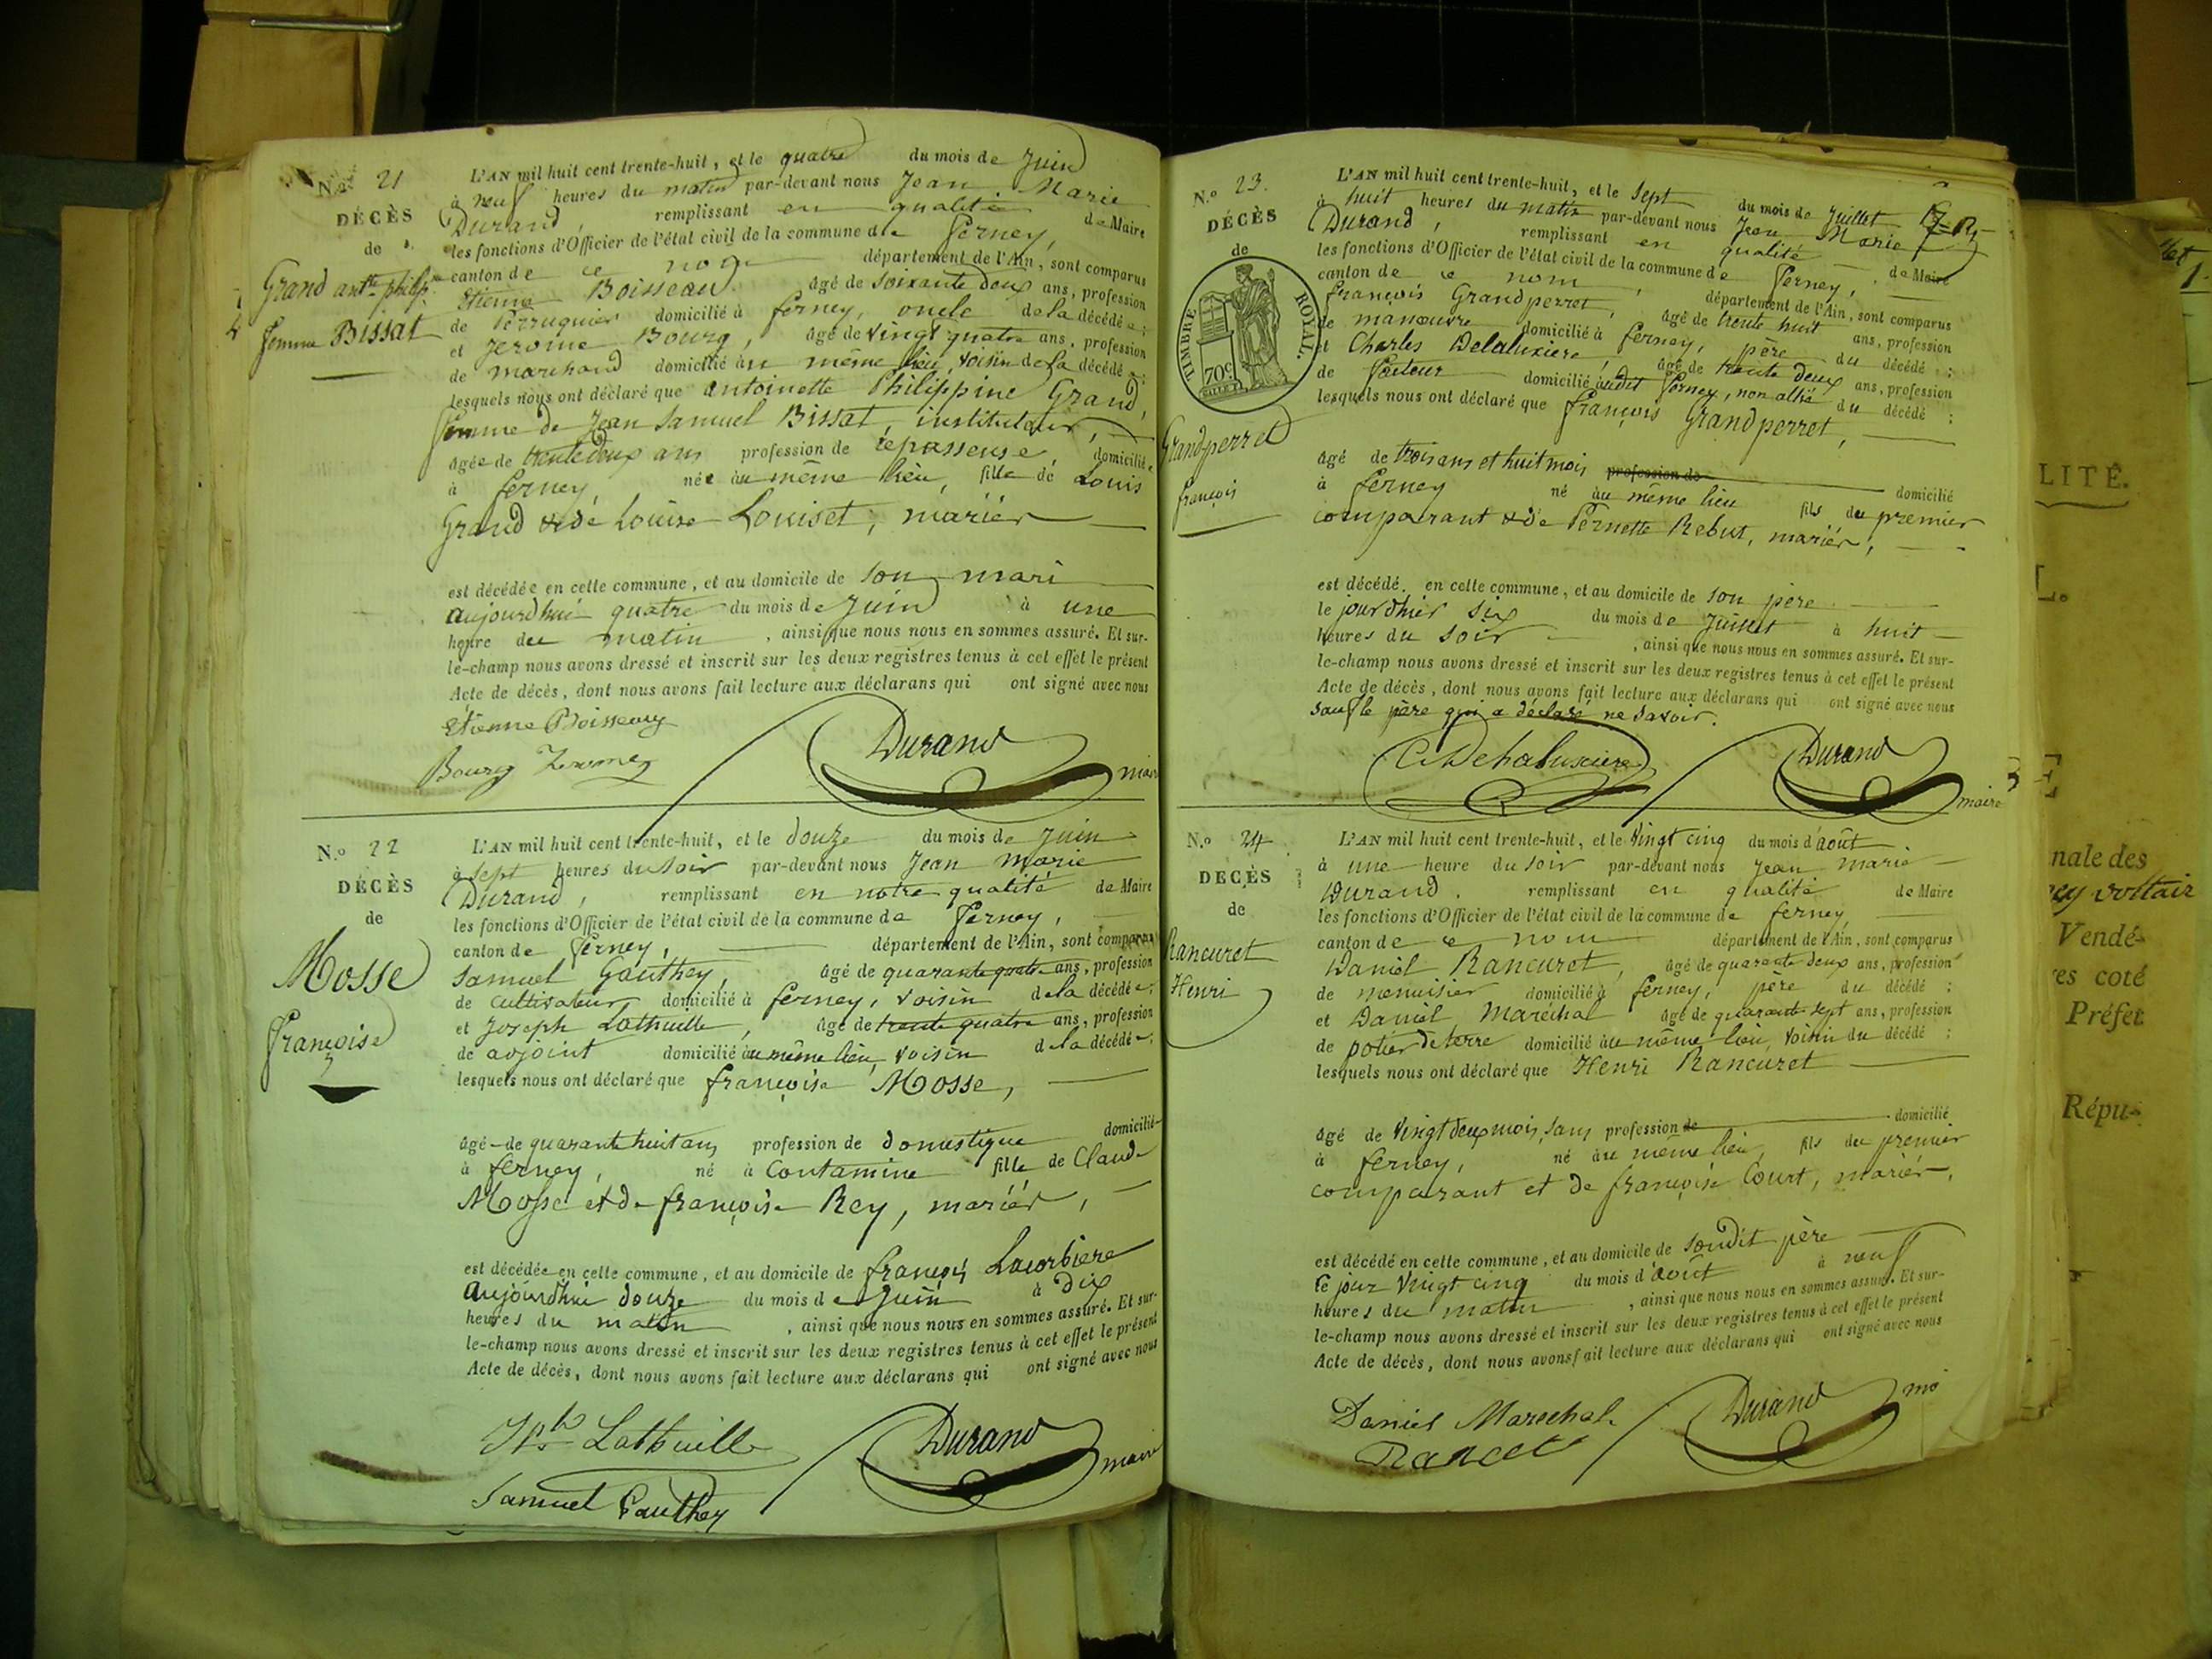 N.° 21
DÉCÈS
de
Grand antte philip.
femme Bissat
L'AN mil huit cent trente-huit, et le quatre du mois de Juin
à neuf heures du matin par-devant nous Jean Marie
Durand, remplissant en qualité de Maire
les fonctions d'Officier de l'état civil de la commune de Ferney,
canton de ce nom département de l'Ain, sont comparus
Etienne Boisseau âgé de soixante deux ans, profession
de Perruquier domicilié à ferney, oncle de la décédée;
et Jerome Bourg, âgé de vingt quatre ans, profession
de marchand domicilié au même lieu, voisin de la décédée;
lesquels nous ont déclaré que antoinette Philippine Grand,
femme de Jean Samuel Bissat, instituteur,
agée de trente deux ans profession de repasseuse, domiciliée
à ferney, née au même lieu, fille de Louis
Grand et de Louise Louiset, mariés
est décédée en cette commune, et au domicile de son mari
aujourd'hui quatre du mois de Juin à une
heure du matin, ainsi que nous nous en sommes assuré. Et sur-
le-champ nous avons dressé et inscrit sur les deux registres tenus à cet effet le présent
Acte de décès, dont nous avons fait lecture aux déclarans qui ont signé avec nous
Etienne Boisseau
Bourg Jerome
Durand
maire
N.° 22
DÉCÈS
de
Mosse
françoise
L'AN mil huit cent trente-huit, et le douze du mois de Juin
à sept heures du soir par-devant nous Jean Marie
Durand, remplissant en notre qualité de Maire
les fonctions d'Officier de l'état civil de la commune de Ferney,
canton de Ferney, département de l'Ain, sont comparus
Samuel Gauthey, âgé de quarante quatre ans, profession
de cultivateur domicilié à ferney, voisin de la décédée;
et Joseph Lathuille, âgé de trente quatre ans, profession
de adjoint domicilié au même lieu, voisin de la décédée;
lesquels nous ont déclaré que françoise Mosse,
âgé de quarante huit ans profession de domestique domicilié
à ferney, né à Contamine fille de Claude
Mosse et de françoise Rey, mariés,
est décédée en cette commune, et au domicile de françois Lacorbiere
aujourd'hui douze du mois de Juin à dix
heures du matin, ainsi que nous nous en sommes assuré. Et sur-
le-champ nous avons dressé et inscrit sur les deux registres tenus à cet effet le présent
Acte de décès, dont nous avons fait lecture aux déclarans qui ont signé avec nous
Lathuille
Durand
maire
Samuel Gauthey
N.° 23.
DÉCÈS
de
TIMBRE ROYAL.
70c
Grandperret
françois
L'AN mil huit cent trente-huit, et le Sept du mois de Juillet
à huit heures du matin par-devant nous Jean Marie
Durand, remplissant en qualité de Maire
les fonctions d'Officier de l'état civil de la commune de Ferney,
canton de ce nom, département de l'Ain, sont comparus
françois Grandperret, âgé de trente huit ans, profession
de manœuvre domicilié à ferney, père du décédé;
et Charles Delaluxiere, âgé de trente deux ans, profession
de domicilié audit ferney, non allié du décédé;
lesquels nous ont déclaré que françois Grandperret,
âgé de trois ans et huit mois profession de domicilié
à ferney né au même lieu fils du premier
comparant et de Pernette Rebut, mariés,
est décédé en cette commune, et au domicile de son père
le jour d'hier six du mois de Juillet à huit
heures du soir, ainsi que nous nous en sommes assuré. Et sur-
le-champ nous avons dressé et inscrit sur les deux registres tenus à cet effet le présent
Acte de décès, dont nous avons fait lecture aux déclarans qui ont signé avec nous
sauf le père qui a déclaré ne savoir.
Durand
maire
N.° 24
DÉCÈS
de
Rancuret
Henri
L'AN mil huit cent trente-huit, et le vingt cinq du mois d'août
à une heure du soir par-devant nous Jean marie
Durand. remplissant en qualité de Maire
les fonctions d'Officier de l'état civil de la commune de ferney,
canton de ce nom département de l'Ain, sont comparus
Daniel Rancuret, âgé de quarante deux ans, profession
de menuisier domicilié à ferney, père du décédé;
et Daniel Maréchal âgé de quarante sept ans, profession
de potier de terre domicilié au même lieu, voisin du décédé;
lesquels nous ont déclaré que Henri Rancuret
âgé de vingt deux mois, sans profession de domicilié
à ferney, né au même lieu, fils du premier
comparant et de françoise Court, mariés,
est décédé en cette commune, et au domicile de sondit père
ce jour vingt cinq du mois d'août à neuf
heures du matin, ainsi que nous nous en sommes assuré. Et sur-
le-champ nous avons dressé et inscrit sur les deux registres tenus à cet effet le présent
Acte de décès, dont nous avons fait lecture aux déclarans qui ont signé avec nous
Daniel Marechal
Durand
LITÉ.
nale des
Vendé-
es coté
Préfet
Répu-